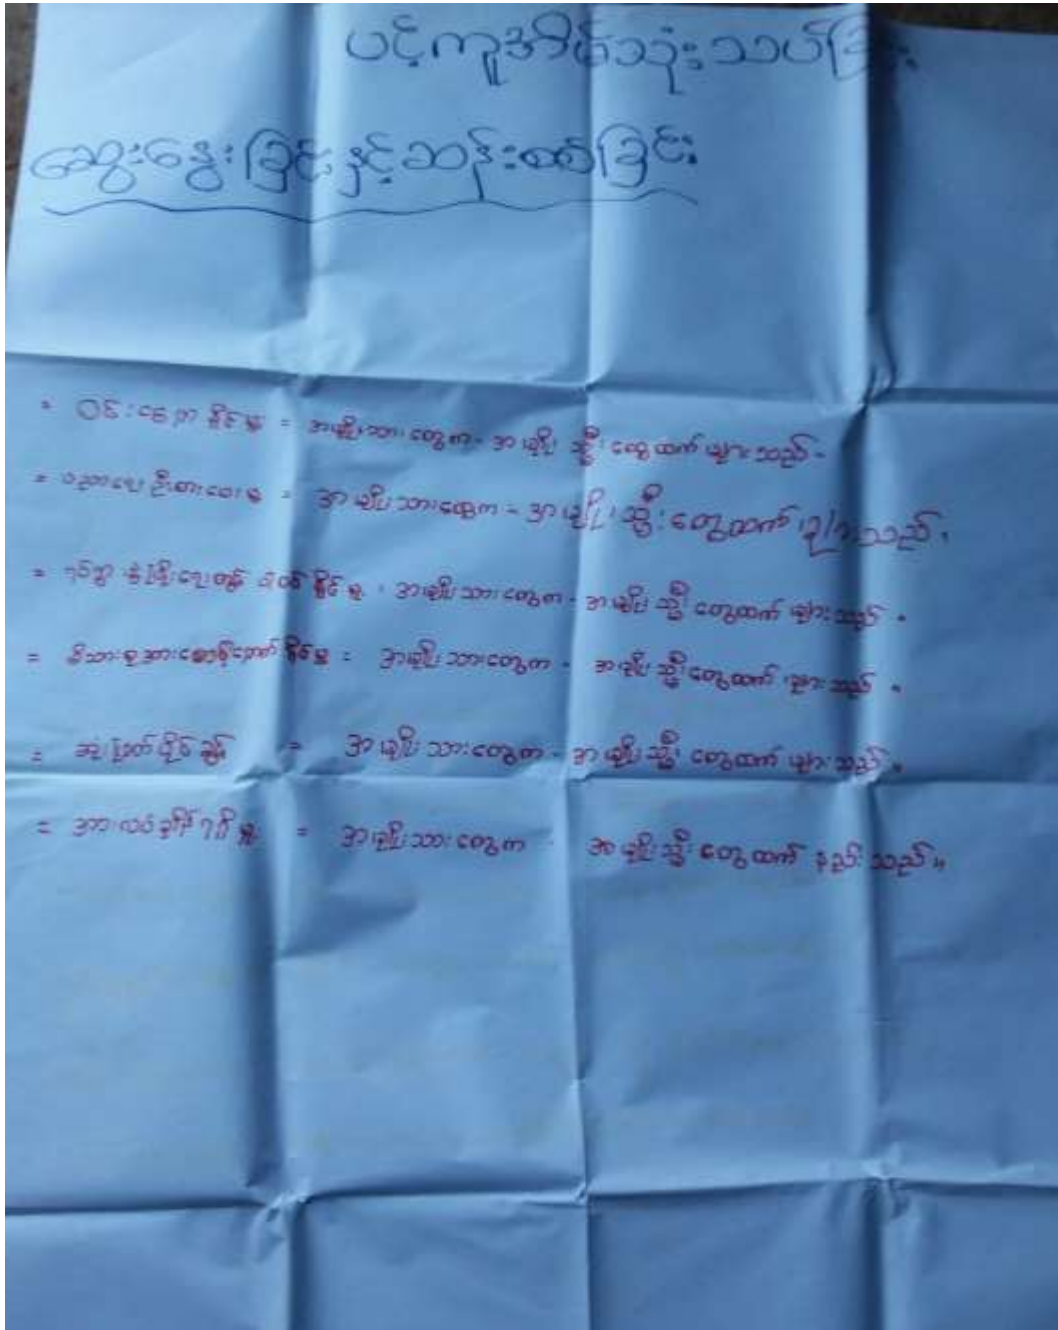 ပင့်ကူအိမ်သုံးသပ်ခြင်း
ဆွေးနွေးခြင်းနှင့်ဆန်းစစ်ခြင်း
= ဝင်ငွေရှာနိုင်မှု = အမျိုးသားတွေက - အမျိုးသ္မီးတွေထက် များသည် -
= ပညာရေးဦးစားပေးမှု = အမျိုးသားတွေက - အမျိုးသ္မီးတွေထက် များသည်။
= ရပ်ရွာဖွံ့ဖြိုးရေးတွင် ပါဝင်နိုင်မှု = အမျိုးသားတွေက - အမျိုးသ္မီးတွေထက် များသည် -
= မိသားစုအားစောင့်ရှောက်နိုင်မှု = အမျိုးသားတွေက - အမျိုးသ္မီးတွေထက် များသည် -
= ဆုံးဖြတ်ပိုင်ခွင့် = အမျိုးသားတွေက - အမျိုးသ္မီးတွေထက် များသည်။
= အားလပ်ချိန်ရရှိမှု = အမျိုးသားတွေက - အမျိုးသ္မီးတွေထက် နည်းသည်။